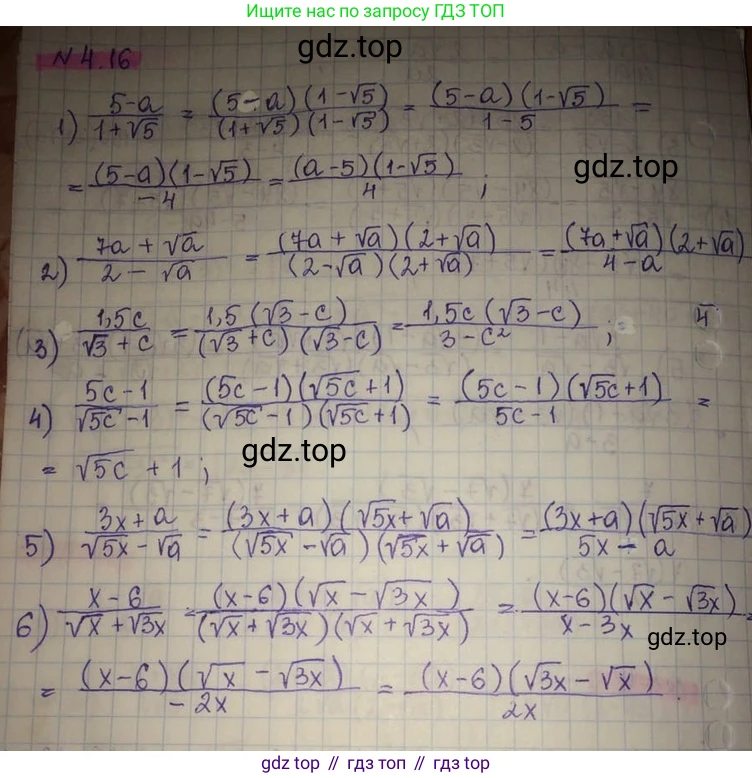 Ищите нас по запросу ГДЗ ТОП
N 4.16
gdz.top
1) (5-a)/(1+√5) = ((5-a)(1-√5))/((1+√5)(1-√5)) = ((5-a)(1-√5))/(1-5) =
= ((5-a)(1-√5))/(-4) = ((a-5)(1-√5))/4 ;
gdz.top
2) (7a+√a)/(2-√a) = ((7a+√a)(2+√a))/((2-√a)(2+√a)) = ((7a+√a)(2+√a))/(4-a)
3) 1,5c/(√3+c) = (1,5(√3-c))/((√3+c)(√3-c)) = (1,5c(√3-c))/(3-c²) ;
4) (5c-1)/(√5c-1) = ((5c-1)(√5c+1))/((√5c-1)(√5c+1)) = ((5c-1)(√5c+1))/(5c-1) =
= √5c + 1 ;
gdz.top
5) (3x+a)/(√5x-√a) = ((3x+a)(√5x+√a))/((√5x-√a)(√5x+√a)) = ((3x+a)(√5x+√a))/(5x-a)
6) (x-6)/(√x+√3x) = ((x-6)(√x-√3x))/((√x+√3x)(√x+√3x)) = ((x-6)(√x-√3x))/(x-3x) =
gdz.top
= ((x-6)(√x-√3x))/(-2x) = ((x-6)(√3x-√x))/(2x)
gdz.top // гдз топ // gdz top